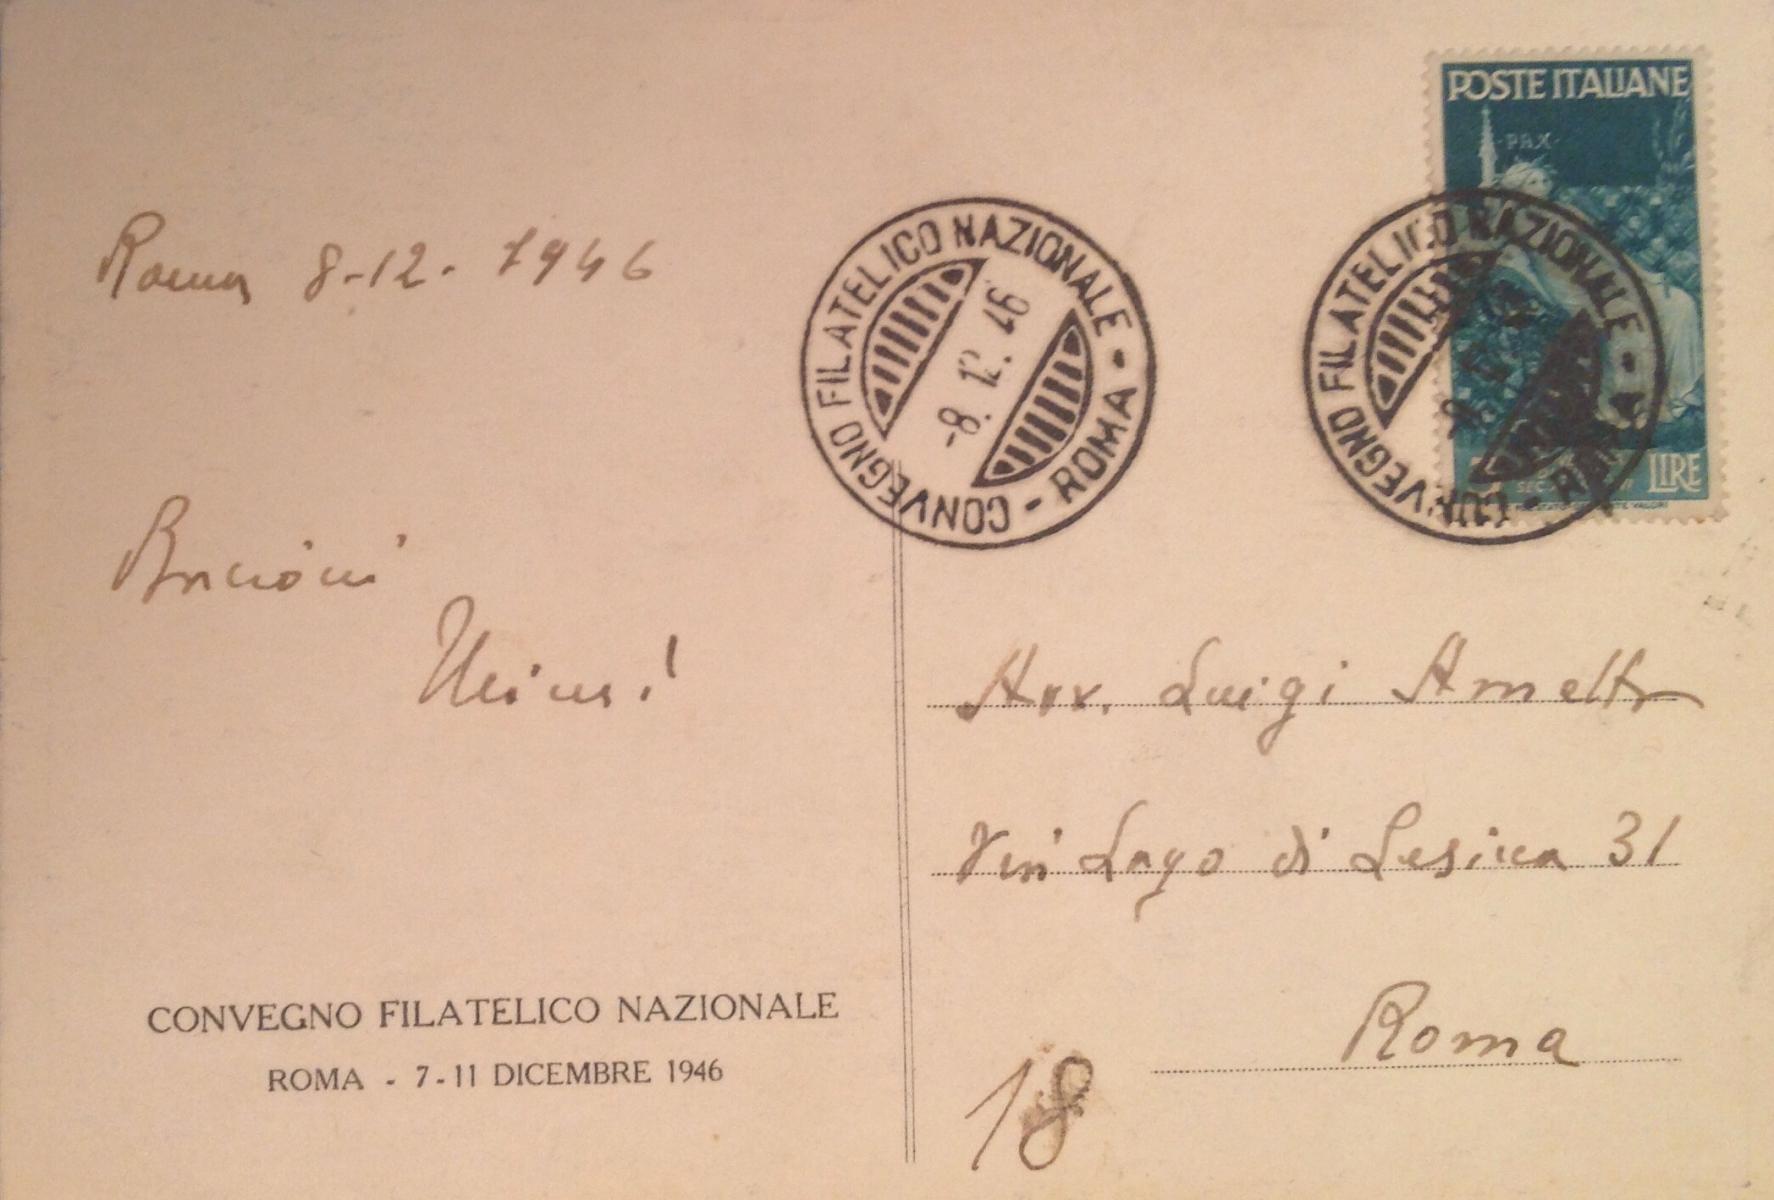 POSTE ITALIANE
PAX
Roma 8-12-1946
CONVEGNO FILATELICO NAZIONALE - ROMA -
-8. 12. 46
CONVEGNO FILATELICO NAZIONALE - ROMA -
LIRE
Bacioni
!
Avv. Luigi
Via Lago di Lesina 31
Roma
CONVEGNO FILATELICO NAZIONALE
ROMA - 7-11 DICEMBRE 1946
18